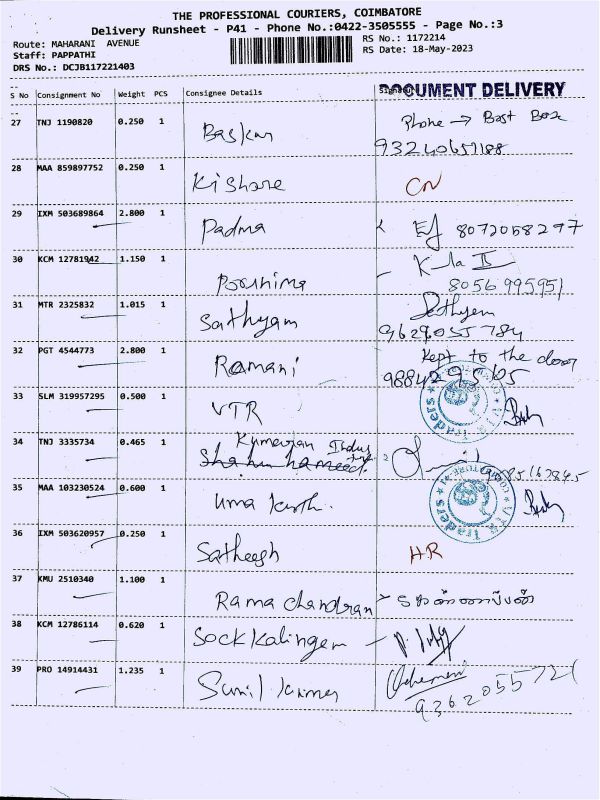 THE PROFESSIONAL COURIERS, COIMBATORE
Delivery Runsheet - P41 - Phone No.:0422-3505555 - Page No.:3
Route: MAHARANI AVENUE
RS No.: 1172214
Staff: PAPPATHI
RS Date: 18-May-2023
DRS No.: DCJB117221403
S No Consignment No Weight PCS Consignee Details Signature
DOCUMENT DELIVERY
27 TNJ 1190820 0.250 1 Baskar Phone → Bast Box
28 MAA 859897752 0.250 1 Kishore CN
29 IXM 503689864 2.800 1 Padma 8072058297
30 KCM 12781942 1.150 1 Pornima
8056995951
31 MTR 2325832 1.015 1 Sathyam Sathyam
9629055784
32 PGT 4544773 2.800 1 Ramani Kept to the door
33 SLM 319957295 0.500 1 VTR
VTR Traders
34 TNJ 3335734 0.465 1
35 MAA 103230524 0.600 1 Uma
VTR Traders
36 IXM 503620957 0.250 1 Satheesh HR
37 KMU 2510340 1.100 1 Rama chandran
38 KCM 12786114 0.620 1 Sockkalingem
39 PRO 14914431 1.235 1 Sunil kumar
9362055721